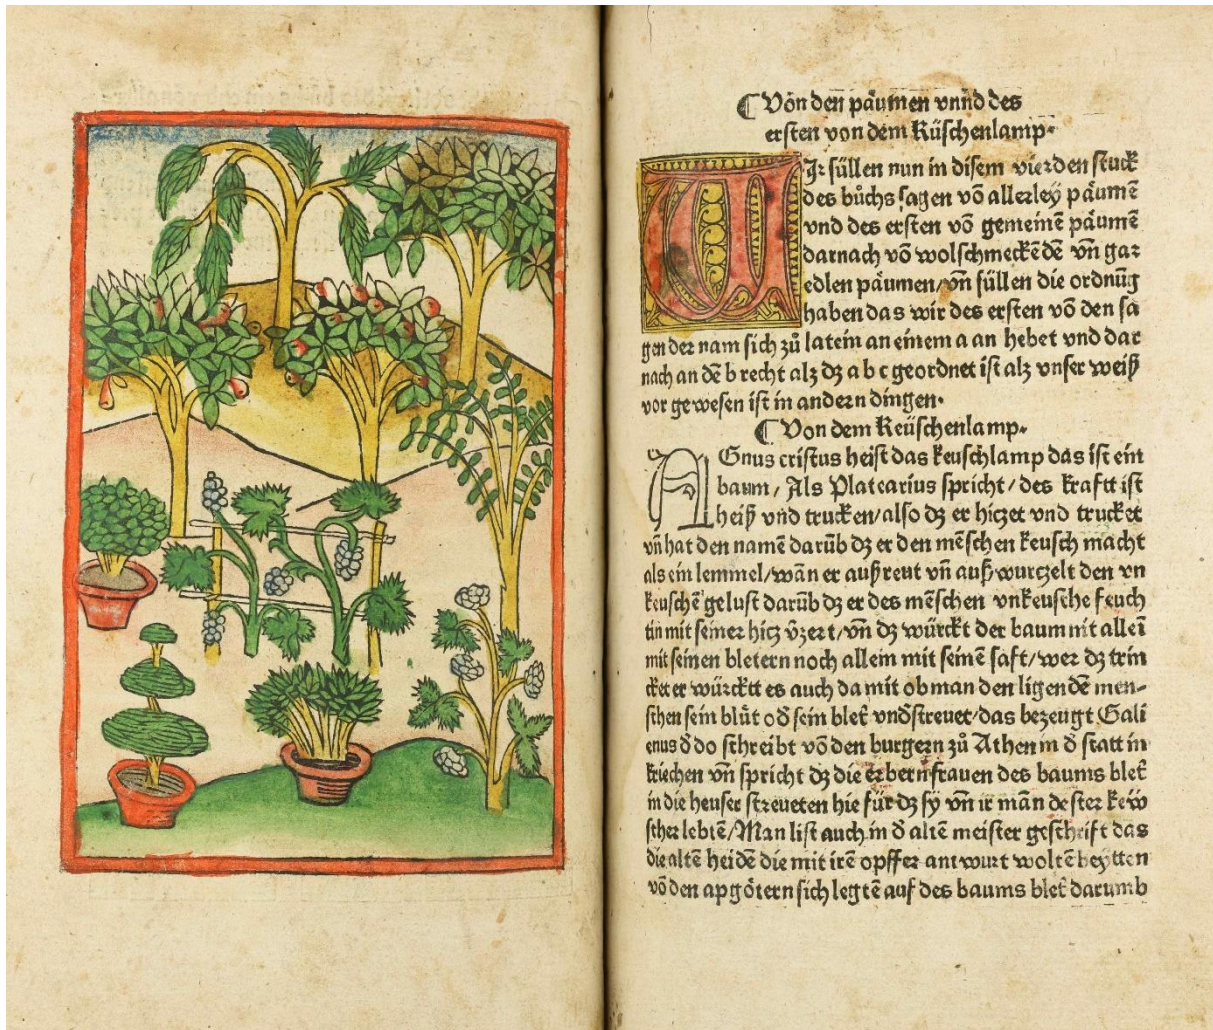 ¶ Von den päumen vnnd des
ersten von dem Küschenlamp.
WIr süllen nun in disem vierden stuck
des bůchs sagen võ allerley päumẽ
vnd des ersten võ gemeinẽ päumẽ
darnach võ wolschmeckẽdẽ vñ gar
edlen päumen/vñ süllen die ordnũg
haben das wir des ersten võ den sa
gen der nam sich zů latein an einem a an hebet vnd dar
nach an dẽ b recht alz dz a b c geordnet ist alz vnser weiß
vor gewesen ist in andern dingen.
¶ Von dem Keüschenlamp.
AGnus cristus heist das keuschlamp das ist ein
baum/ Als Platearius spricht/ des krafft ist
heiß vnd trucken/also dz er hiczet vnd trucket
vñ hat den namẽ darũb dz er den mẽschen keusch macht
als ein lemmel/wãn er außreut vñ außwurczelt den vn
keuschẽ gelust darũb dz er des mẽschen vnkeusche feuch
tin mit seiner hicz ṽzert/vñ dz würckt der baum nit alleĩ
mit seinen bletern noch allein mit seinẽ saft/wer dz trin
cket er würcktt es auch da mit ob man den ligendẽ men-
schen sein blůt od̃ sein blet̃ vnd̃streuet/das bezeugt Gali
enus d̃ do schreibt võ den burgern zů Athen in d̃ statt in
kriechen vñ spricht dz die erbern frauen des baums blet̃
in die heuser streueten hie für dz sy vñ ir mãn dester kew
scher lebtẽ/Man list auch in d̃ altẽ meister geschrift das
die altẽ heidẽ die mit irẽ opffer antwurt woltẽ beytten
võ den apgötern sich legtẽ auf des baums blet̃ darumb